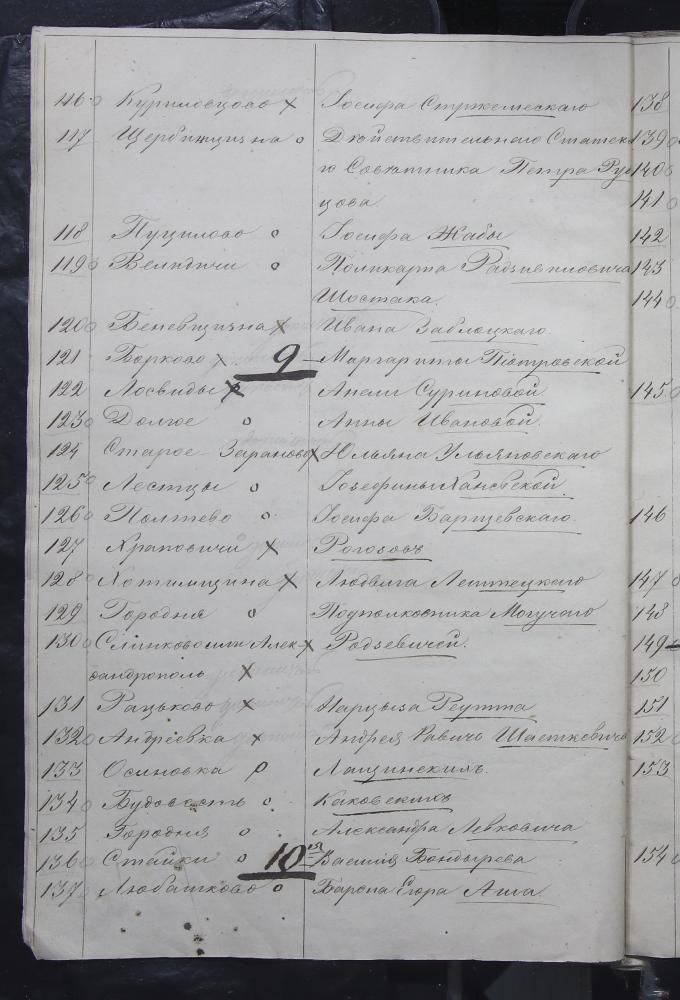 116 Куриловцово x Іосифа Стржемескаго 138
117 Щербинщизна о Дѣйствительнаго Статска 139
го Совѣтника Петра Рус 140
цова 141
118 Пуцилово о Іосифа Жабы 142
119 Велидичи о Поликарпа Радзивиловича 143
Шостака. 144
120 Беневщизна x Ивана Заблоцкаго.
121 Борково x 9 Маргариты Піотровской
122 Лосвиды x Анели Суриновой 145
123 Долгое о Анны Ивановой.
124 Старое-Зараново x Юльяна Ульяновскаго
125 Лестцы о Іозефины
126 Полтево о Іосифа Барщевскаго. 146
127 Храповичи x Рогозовъ
128 Хотимщизна x Людвига 147
129 Городня о Подполковника Могучаго 148
130 Слинково или Алек- x Родзевичей. 149
сандрополь x 150
131 Рацьково x Нарцыза Реутта 151
132 Андріевка x Андрея Равичъ 152
133 Осиновка о Лащинскихъ. 153
134 Будовесть о Каховскихъ
135 Городня о Александра Левковича
136 Стайки о 10 Василія Бондырева 154
137 Любашково о Барона Егора Аша.